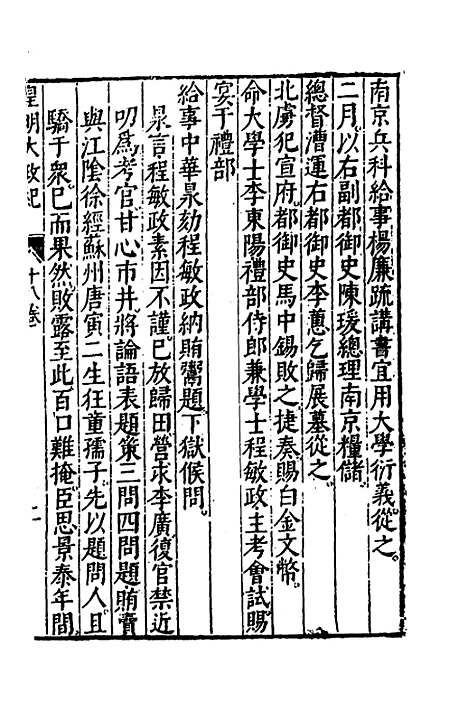 南京兵科給事楊廉疏講書宜用大學衍義。從之。
二月。以右副都御史陳瑗總理南京糧儲。
總督漕運右都御史李蕙乞歸展墓從之。
北虜犯宣府。都御史馬中錫敗之。捷奏賜白金文幣。
命大學士李東陽禮部侍郎兼學士程敏政主考會試賜
宴于禮部
給事中華杲劾程敏政納賄鬻題下獄候問。
杲言程敏政素因不謹。巳放歸田營求李廣復官禁近
叨爲考官甘心市井。將論語表題策三問四問題賄賣
與江陰徐經蘇州唐寅二生狂童孺子。先以題問人且
驕于衆。巳而果然。敗露至此百口難掩臣思景泰年間
皇明大政紀 十八卷 二